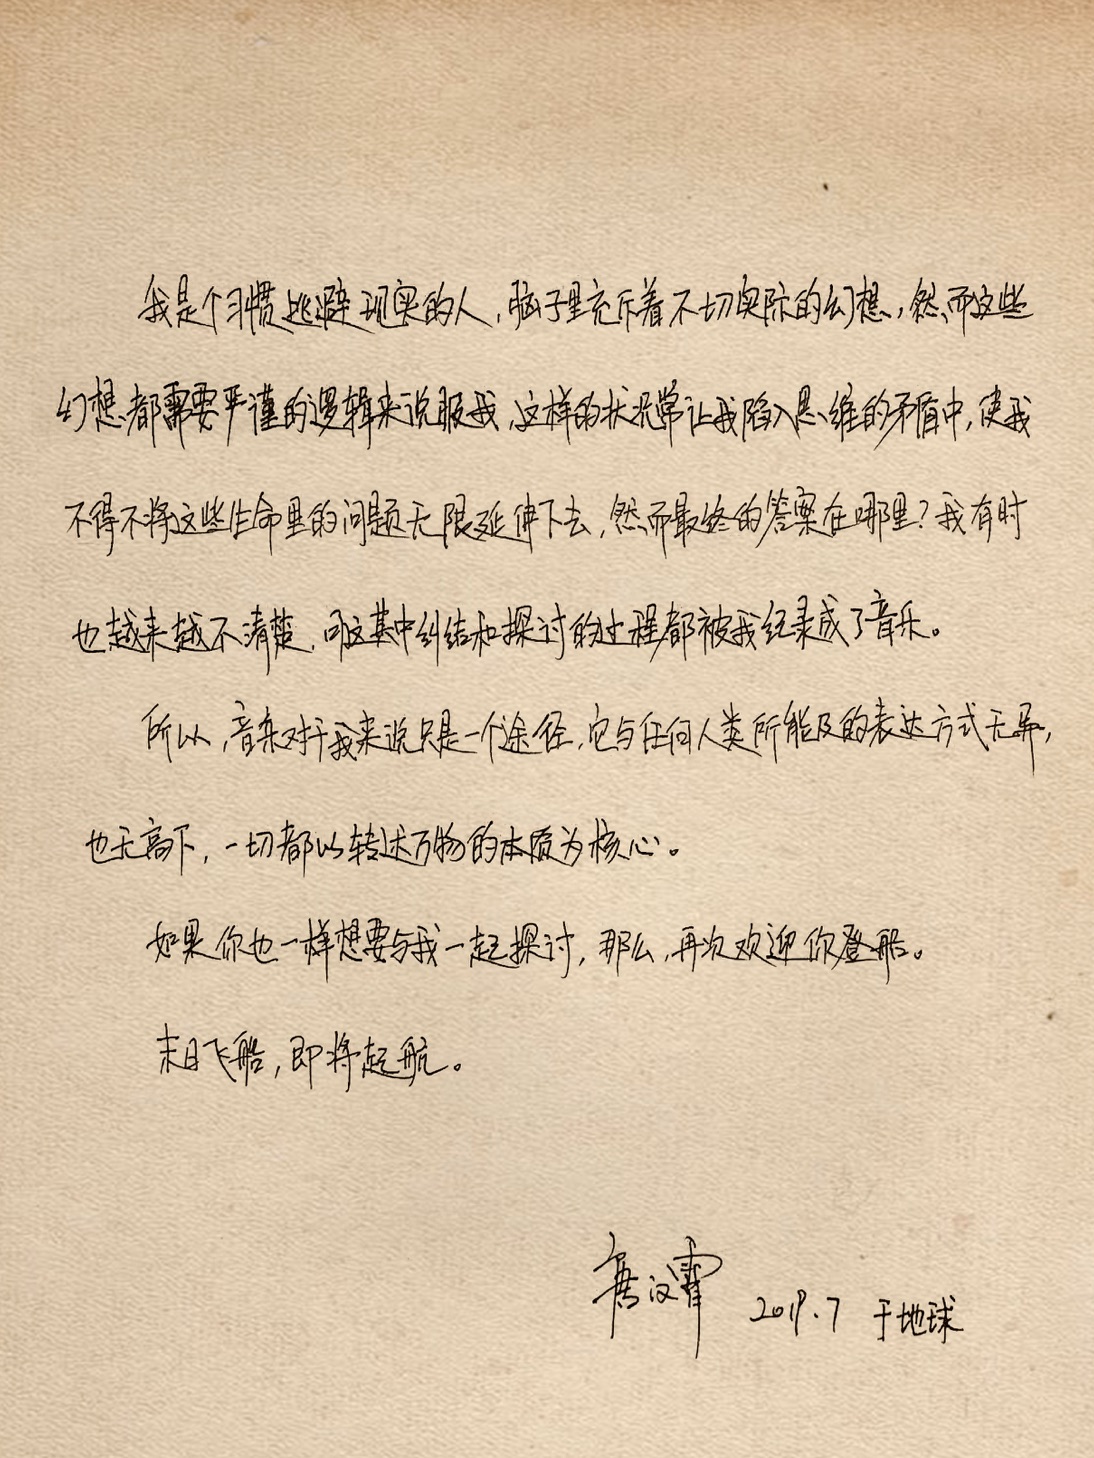 我是个习惯逃避现实的人,脑子里充斥着不切实际的幻想,然而这些
幻想都需要严谨的逻辑来说服我,这样的状况常让我陷入思维的矛盾中,使我
不得不将这些生命里的问题无限延伸下去,然而最终的答案在哪里?我有时
也越来越不清楚,可这其中纠结和探讨的过程都被我纪录成了音乐。
所以,音乐对于我来说只是一个途径,它与任何人类所能及的表达方式无异,
也无高下,一切都以转述万物的本质为核心。
如果你也一样想要与我一起探讨,那么,再次欢迎你登船。
末日飞船,即将起航。
唐汉霄 2019.7 于地球